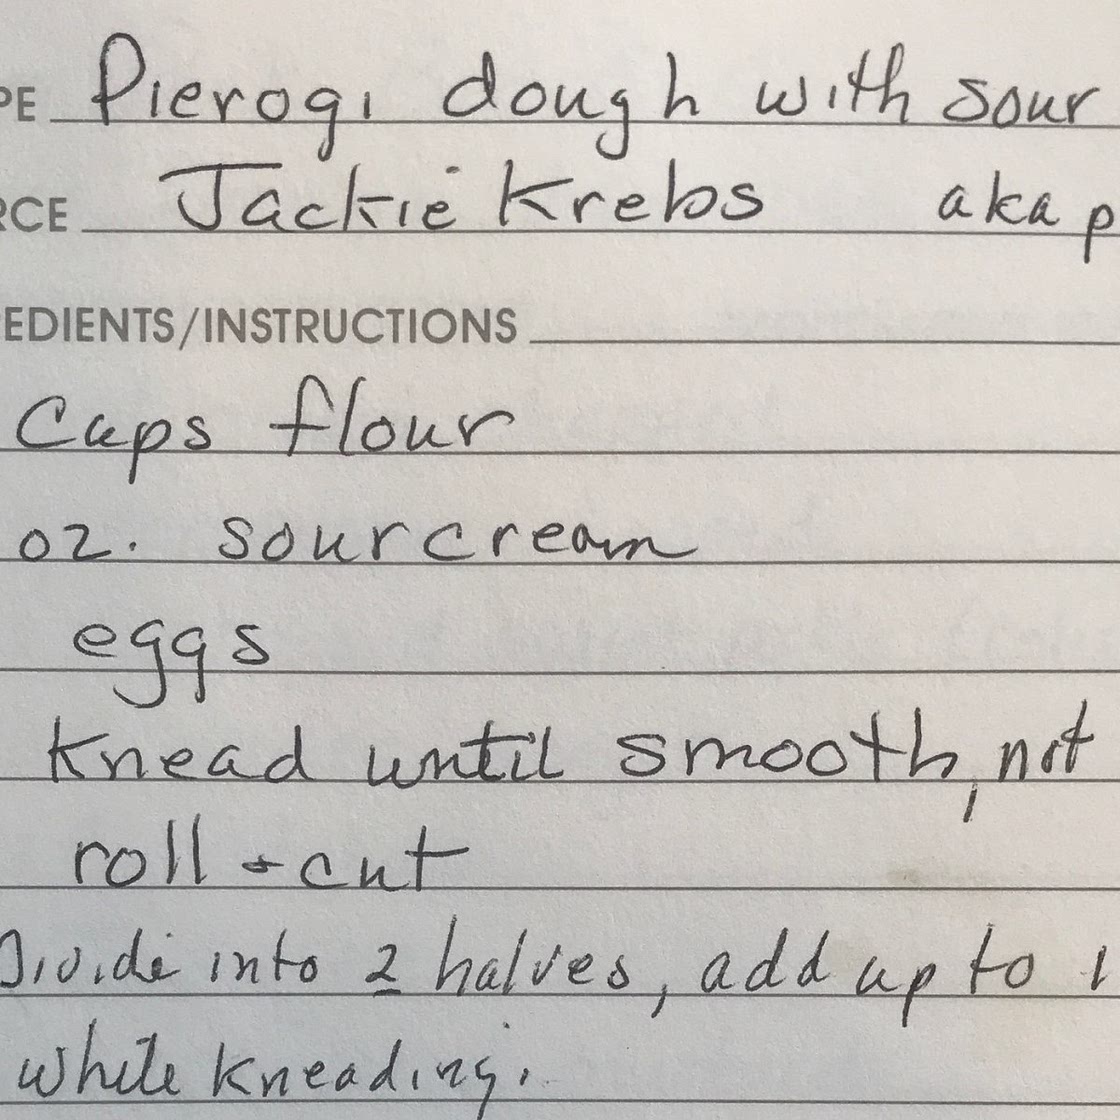 PE Pierogi dough with sour
RCE Jackie Krebs aka p
EDIENTS/INSTRUCTIONS
Cups flour
oz. sour cream
eggs
Knead until smooth, not
roll + cut
Divide into 2 halves, add up to 1
while kneading.